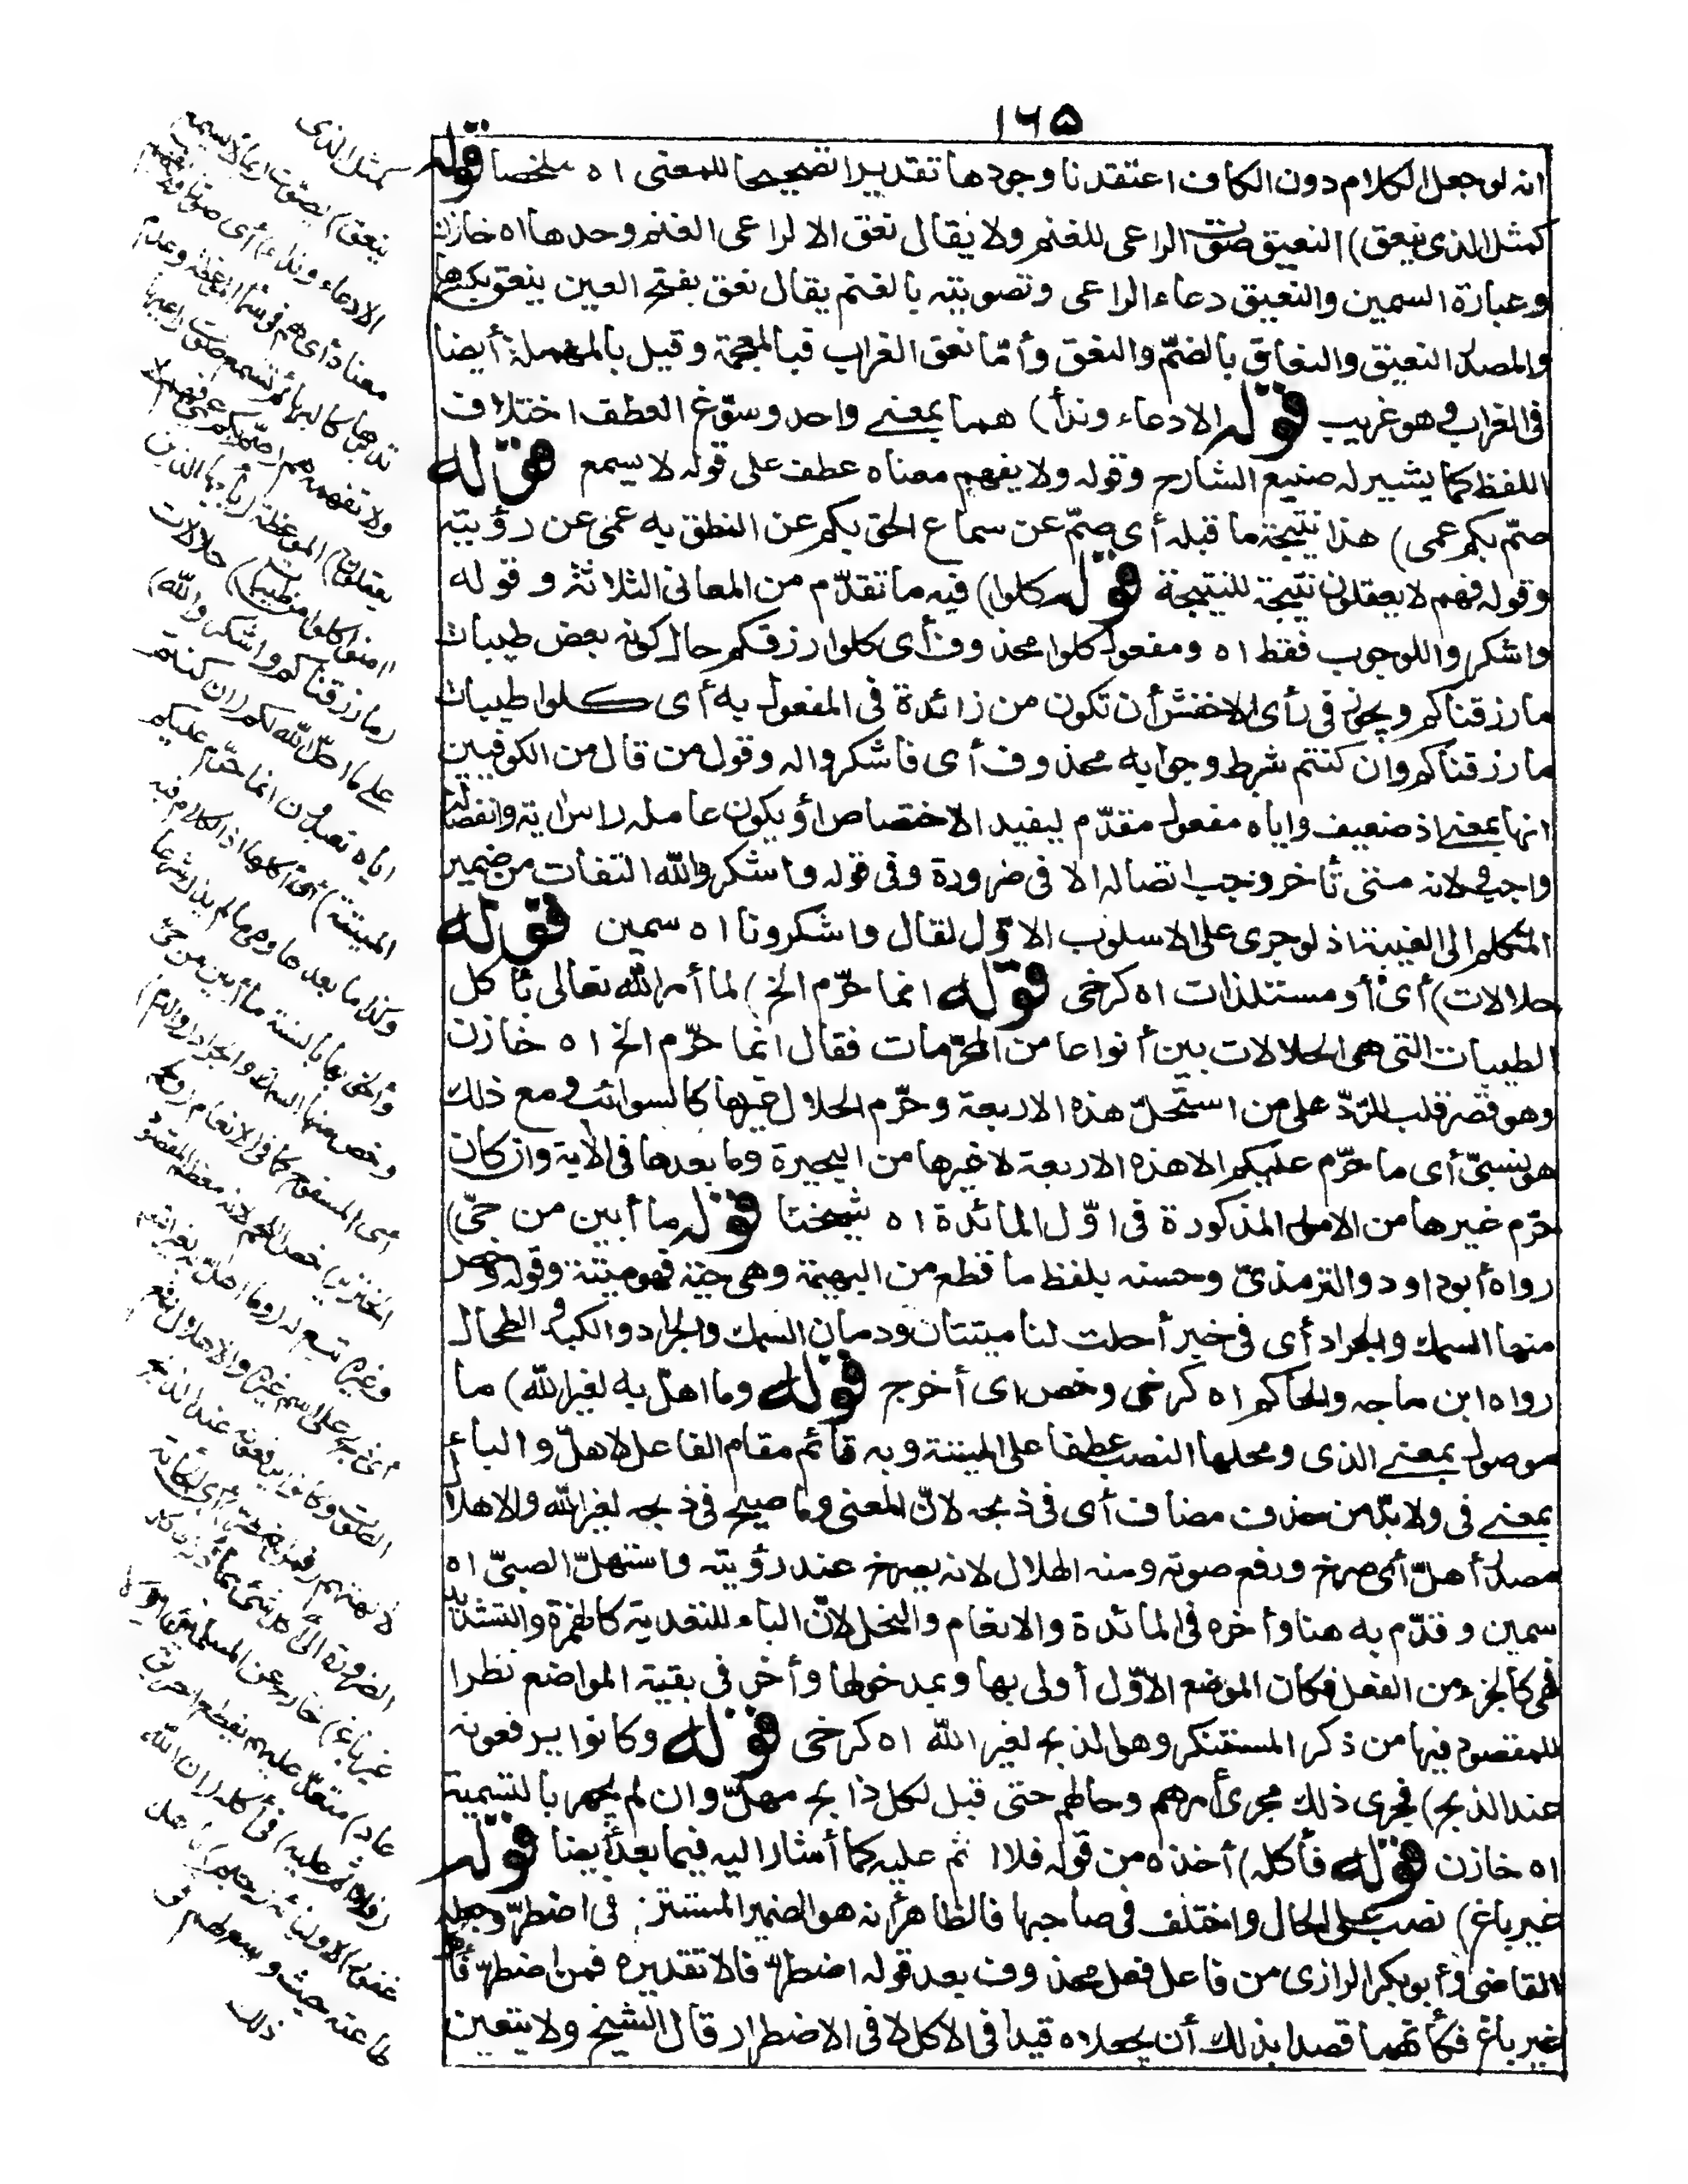 ١٦٥
انه لو جعل الكلام دون الكاف اعتقدنا وجودها تقديرا تصحيحا للمعنى اه ملخصا قوله
كمثل الذى ينعق) النعيق صوت الراعى للغنم ولا يقال نعق الا لراعى الغنم وحدها اه خازن
وعبارة السمين والنعيق دعاء الراعى وتصويته بالغنم يقال نعق بفتح العين ينعق بكسرها
والمصدر النعيق والنعاق بالضمّ والنعق وأمّا نغق الغراب فبالمعجمة وقيل بالمهملة أيضا
فى الغراب وهو غريب قوله الا دعاء وندأ) هما بمعنے واحد وسوّغ العطف اختلاف
اللفظ كما يشير له صنيع الشارح وقوله ولا يفهم معناه عطف على قوله لا يسمع قوله
صمّ بكم عمى) هذا نتيجة ما قبله أى صمّ عن سماع الحق بكم عن النطق به عمى عن رؤيته
وقوله فهم لا يعقلون نتيجة للنتيجة قوله كلوا) فيه ما تقدّم من المعانى الثلاثة وقوله
واشكروا للوجوب فقط اه ومفعول كلوا محذوف أى كلوا رزقكم حال كونه بعض طيبات
ما رزقناكم ويجوز فى رأى الاخفش أن تكون من زائدة فى المفعول به أى كلوا طيبات
ما رزقناكم وان كنتم شرط وجوابه محذوف أى فاشكروا له وقول من قال من الكوفيين
انها بمعنے اذ ضعيف واياه مفعول مقدّم ليفيد الاختصاص أو يكون عامله راس اية وانفصاله
واجب لانه متى تأخر وجب اتصاله الا فى ضرورة وفى قوله واشكروا لله التفات من ضمير
المتكلم الى الغيبة اذ لو جرى على الاسلوب الاوّل لقال واشكرونا اه سمين قوله
حلالات) أى أو مستلذات اه كرخى قوله انما حرّم الخ) لما أمر الله تعالى بأكل
الطيبات التى هى الحلالات بين أنواعا من المحرّمات فقال انما حرّم الخ اه خازن
وهو قصر قلب للردّ على من استحلّ هذه الاربعة وحرّم الحلال غيرها كالسوائب ومع ذلك
هو نسبىّ أى ما حرّم عليكم الا هذه الاربعة لا غيرها من البحيرة وما بعدها فى الآية وان كان
حرّم غيرها من الامور المذكورة فى اوّل المائدة اه شيخنا قوله ما أبين من حىّ)
رواه أبو داود والترمذىّ وحسنه بلفظ ما قطع من البهيمة وهى حيّة فهو ميتة وقوله وخص
منها السمك والجراد أى فى خبر أحلت لنا ميتتان ودمان السمك والجراد والكبد والطحال
رواه ابن ماجه والحاكم اه كرخى وخص اى أخرج قوله وما اهلّ به لغير الله) ما
موصول بمعنے الذى ومحلها النصب عطفا على الميتة وبه قائم مقام الفاعل لاهلّ والباء
بمعنے فى ولا بدّ من حذف مضاف أى فى ذبحه لانّ المعنى وما صيح فى ذبحه لغير الله والاهلال
مصدر أهلّ أى صرخ ورفع صوته ومنه الهلال لانه يصرخ عند رؤيته واستهلّ الصبىّ اه
سمين وقدّم به هنا وأخره فى المائدة والانعام والنحل لانّ الباء للتعدية كالهمزة والتشديد
فهى كالجزء من الفعل فكان الموضع الاوّل أولى بها وبمدخولها وأخر فى بقية المواضع نظرا
للمقصود فيها من ذكر المستنكر وهو الذبح لغير الله اه كرخى قوله وكانوا يرفعونه
عند الذبح) فجرى ذلك مجرى أمرهم وحالهم حتى قيل لكل ذابح مهلّ وان لم يجهر بالتسمية
اه خازن قوله فأكله) أخذه من قوله فلا اثم عليه كما أشار اليه فيما بعد أيضا قوله
غير باغ) نصب على الحال واختلف فى صاحبها فالظاهر أنه هو الضمير المستتر فى اضطرّ وجعله
القاضى وأبو بكر الرازى من فاعل فعل محذوف بعد قوله اضطرّ قالا تقديره فمن اضطرّ فأكل
غير باغ فكأنهما قصدا بذلك أن يجعلاه قيدا فى الاكل لا فى الاضطرار قال الشيخ ولا يتعين
كمثل الذى
ينعق) يصوّت (بما لا يسمع
الا دعاء ونداء) أى صوتا ولا يفهم
معناه أى هم فى سماع الموعظة وعدم
تدبرها كالبهائم تسمع صوت راعيها
ولا تفهمه هم (صمّ بكم عمى فهم لا
يعقلون) الموعظة (يأيها الذين
امنوا كلوا من طيبات) حلالات
(ما رزقناكم واشكروا لله)
على ما احلّ الله لكم (ان كنتم
اياه تعبدون انما حرّم عليكم
الميتة) أى أكلها اذ الكلام فيه
وكذا ما بعدها وهى ما لم يذك شرعا
وألحق بها بالسنة ما أبين من حىّ
وخص منها السمك والجراد (والدم)
أى المسفوح كما فى الانعام (ولحم
الخنزير) خص اللحم لانه معظم المقصود
وغيره تبع له (وما اهلّ به لغير الله)
أى ذبح على اسم غيره والاهلال رفع
الصوت وكانوا يرفعونه عند الذبح
لآلهتهم (فمن اضطرّ) أى ألجأته
الضرورة الى أكل شئ مما ذكر فأكله
(غير باغ) خارج عن المسلمين (ولا
عاد) متعدّ عليهم بقطع الطريق
(فلا اثم عليه) فى أكله (ان الله
غفور) لاوليائه (رحيم) بأهل
طاعته حيث وسع لهم فى
ذلك